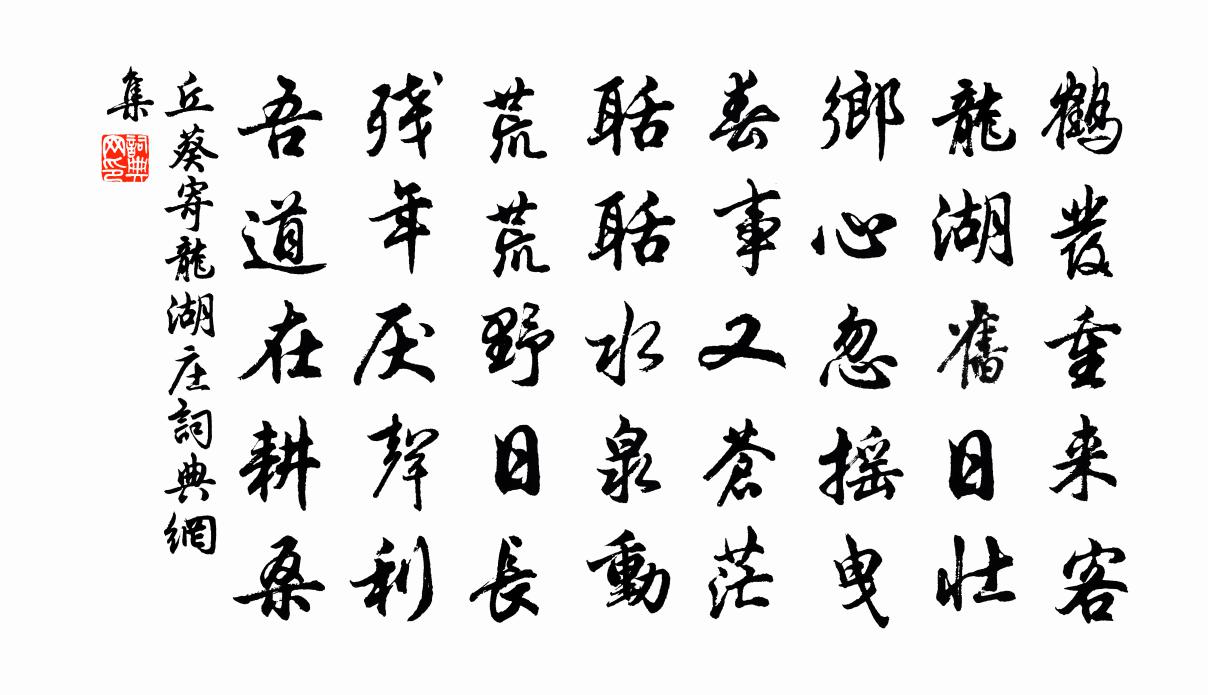 鶴發重来客
龍湖舊日壯
鄉心忽摇曳
春事又蒼茫
聒聒水泉動
荒荒野日長
残年厌聲利
吾道在耕桑
丘葵寄龍湖庄詞典網
集
詞典
网印